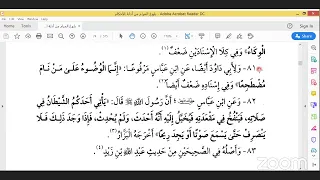 الْوِكَاءُ» وَفِي كِلَا الْإِسْنَادَيْنِ ضَعْفٌ(١).
٨١- وَلِأَبِي دَاوُدَ أَيْضًا، عَنِ ابْنِ عَبَّاسٍ مَرْفُوعًا: «إِنَّمَا الْوُضُوءُ عَلَىٰ مَنْ نَامَ
مُضْطَجِعًا» وَفِي إِسْنَادِهِ ضَعْفٌ أَيْضًا(٢).
٨٢- وَعَنِ ابْنِ عَبَّاسٍ ؛ أَنَّ رَسُولَ اللهِ ﷺ قَالَ: «يَأْتِي أَحَدَكُمُ الشَّيْطَانُ فِي
صَلَاتِهِ، فَيَنْفُخُ فِي مَقْعَدَتِهِ فَيُخَيَّلُ إِلَيْهِ أَنَّهُ أَحْدَثَ، وَلَمْ يُحْدِثْ، فَإِذَا وَجَدَ ذَلِكَ فَلَا
يَنْصَرِفُ حَتَّىٰ يَسْمَعَ صَوْتًا أَوْ يَجِدَ رِيحًا» أَخْرَجَهُ الْبَزَّارُ(٣).
٨٣- وَأَصْلُهُ فِي الصَّحِيحَيْنِ مِنْ حَدِيثِ عَبْدِ اللهِ بْنِ زَيْدٍ(٤).
zoom